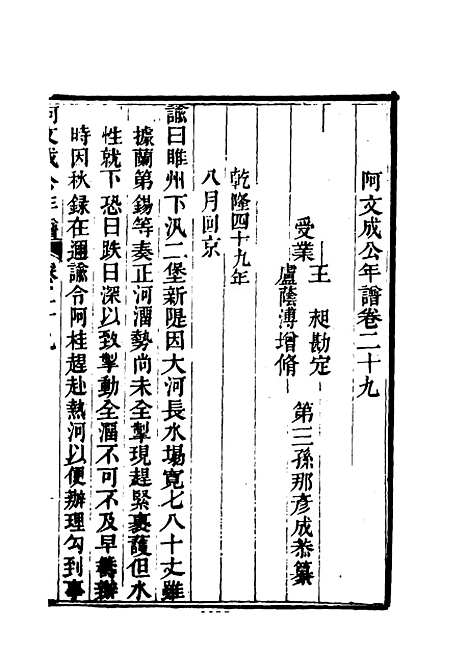 阿文成公年譜卷二十九
第三孫那彥成恭纂
受業
王　昶勘定
盧蔭溥增脩
乾隆四十九年
八月回京
諭曰睢州下汛二堡新隄因大河長水塌寬七八十丈雖
據蘭第錫等奏正河溜勢尚未全掣現趕緊裹護但水
性就下恐日跌日深以致掣動全溜不可不及早辦
時因秋錄在邇諭令阿桂趕赴熱河以便辦理勾到事
阿文成公年譜 卷二十九